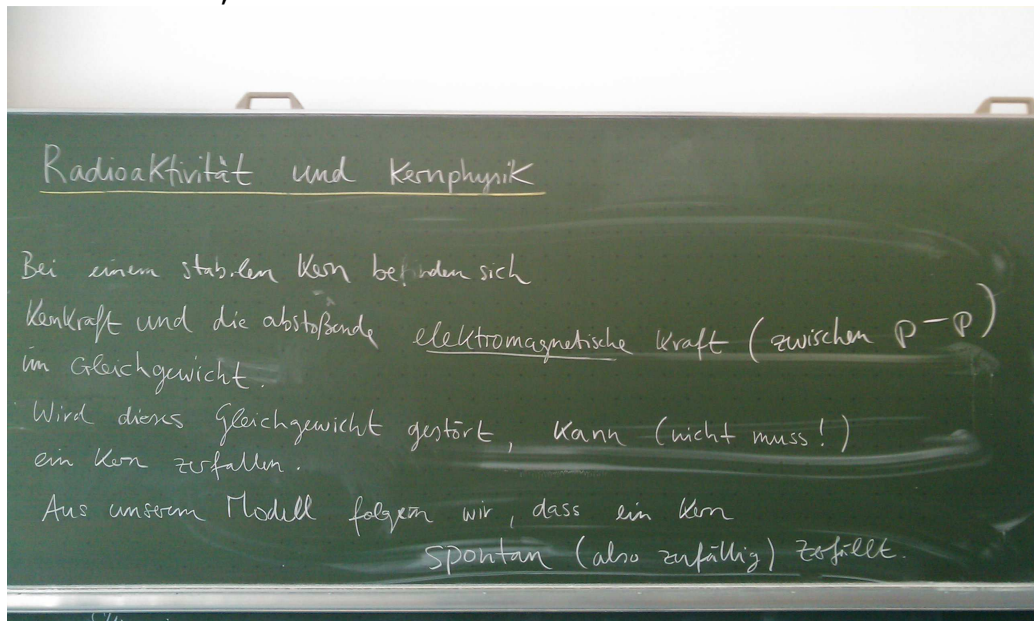 Radioaktivität und Kernphysik
Bei einem stabilen Kern befinden sich
Kernkraft und die abstoßende elektromagnetische Kraft (zwischen p-p)
im Gleichgewicht.
Wird dieses Gleichgewicht gestört, kann (nicht muss!)
ein Kern zerfallen.
Aus unserem Modell folgern wir, dass ein Kern
spontan (also zufällig) zerfällt.